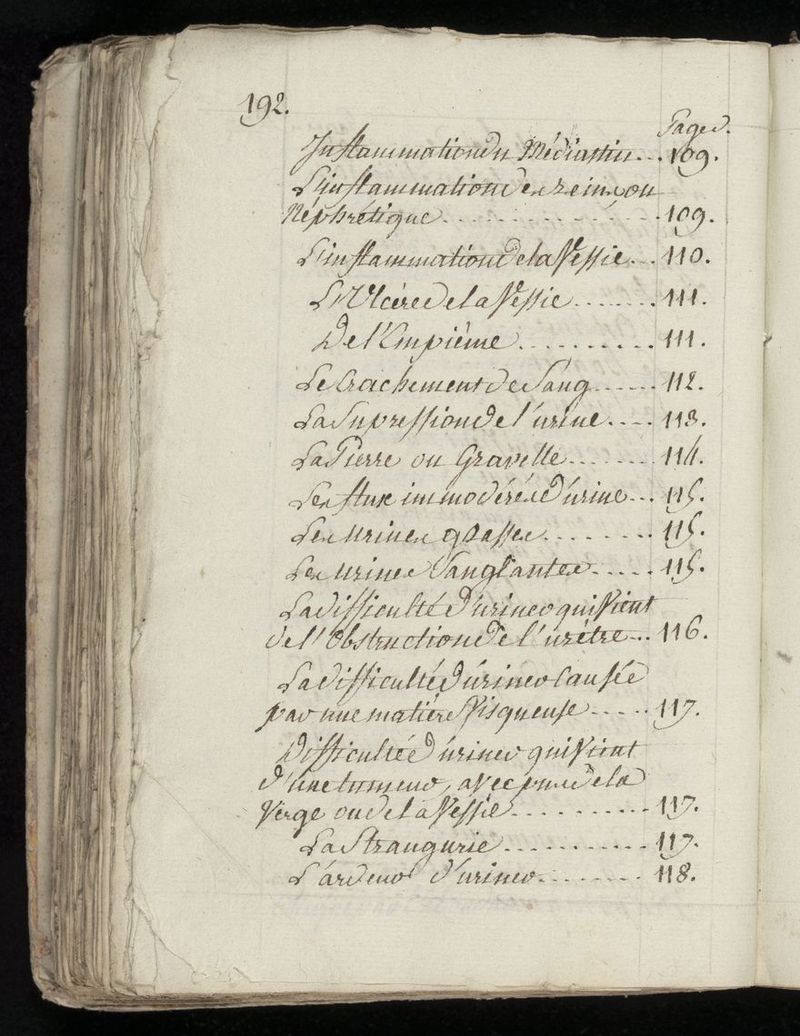 192.
Pages.
Inflammation du Médiastin... 109.
L'inflammation des reins, ou
Néphrétique.............. 109.
L'inflammation de la Vessie... 110.
L'Ulcére de la Vessie....... 111.
De l'Empiéme.......... 111.
Le Crachement de Sang...... 112.
La Supression de l'urine.... 113.
La Pierre ou Gravelle....... 114.
Les flux immodérés d'urine... 115.
Les urines grasses......... 115.
Les urines Sanglantes..... 115.
La difficulté d'uriner qui Vient
de l'Obstruction de l'urétre... 116.
La difficulté d'úriner Causée
par une matiére Visqueuse..... 117.
Difficultée d'uriner qui Vient
d'une tumeur, avec pus de la
Verge ou de la Vessie.......... 117.
La Strangurie............ 117.
L'ardeur d'uriner........ 118.